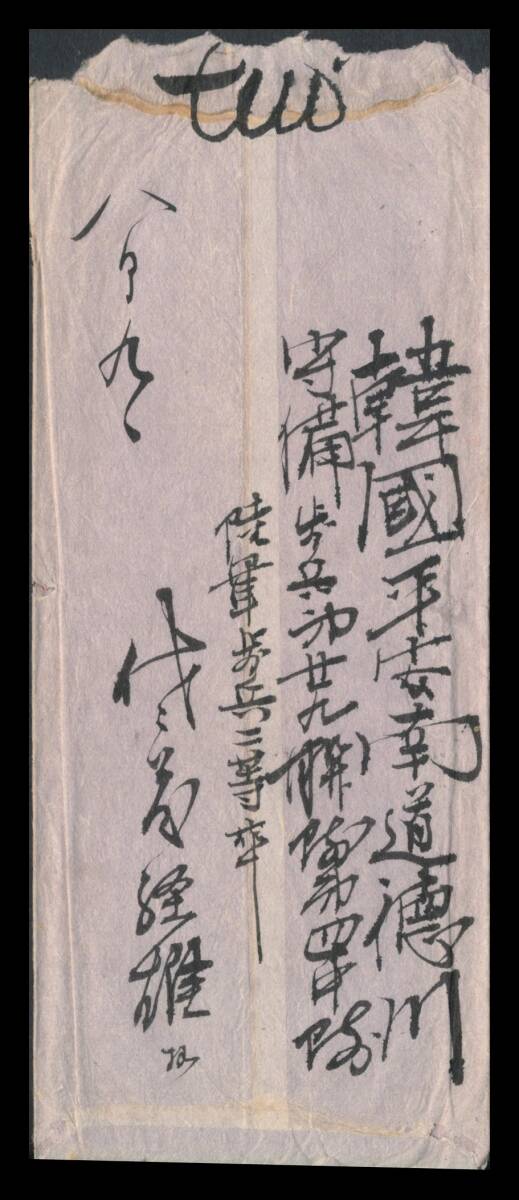 韓國平安南道德川
守備歩兵第廿九聯隊第四中隊
陸軍歩兵二等卒
経雄
八月九日